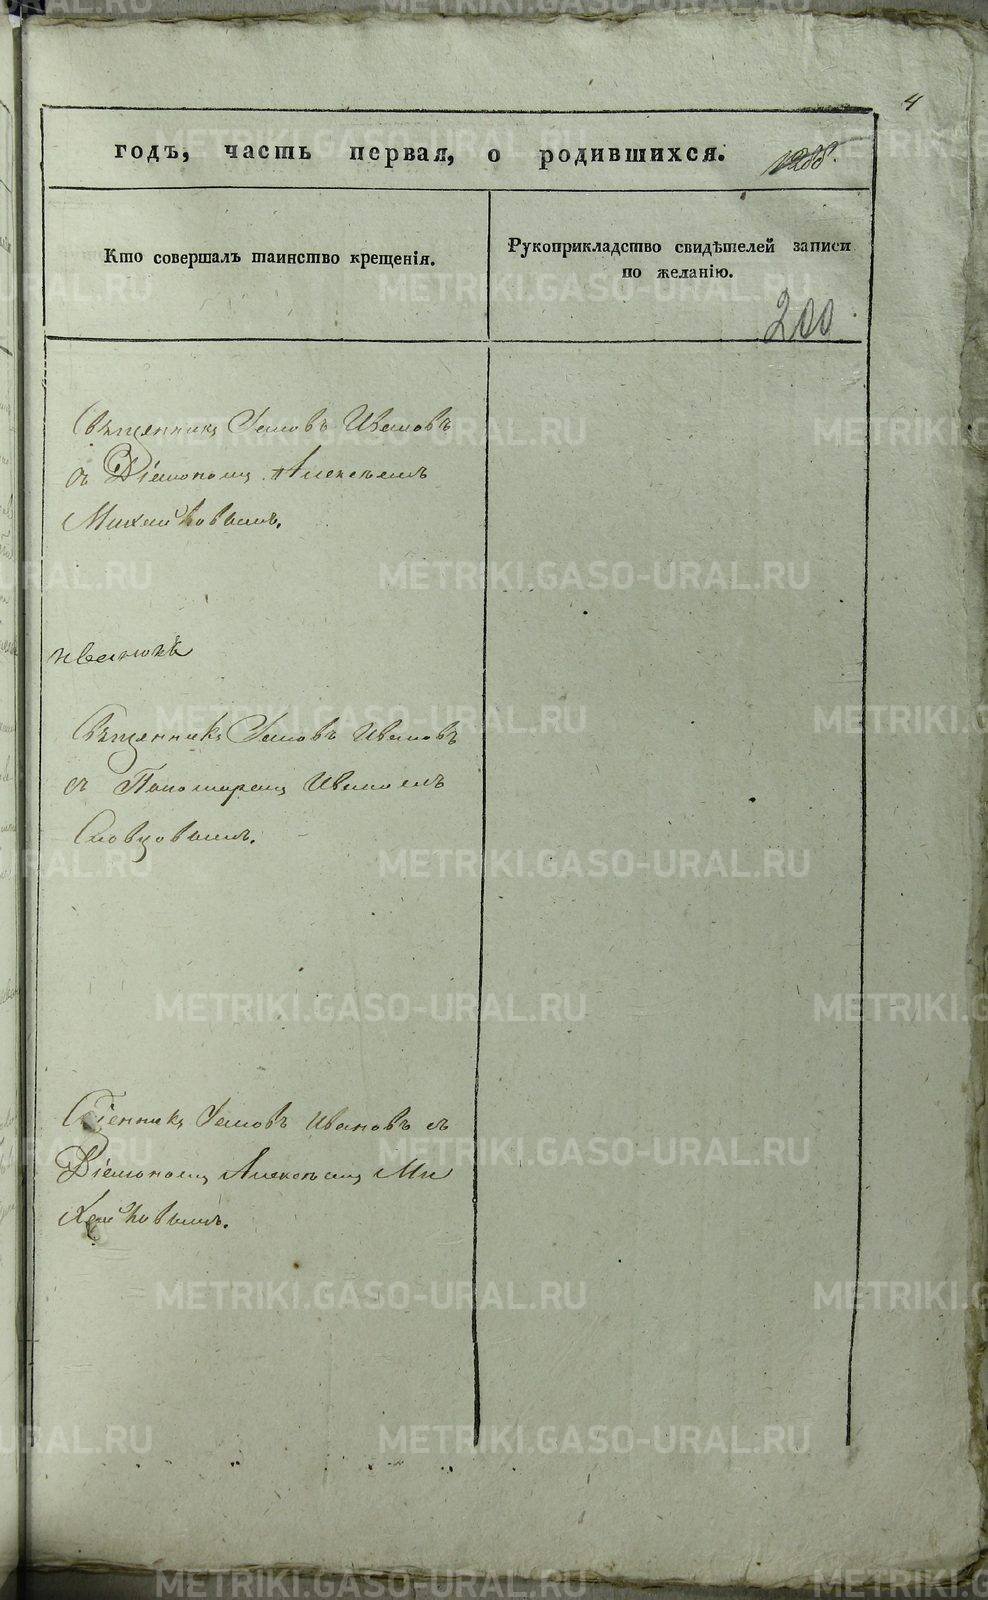 4
годъ, часть первая, о родившихся.
Кто совершалъ таинство крещенія.
Рукоприкладство свидѣтелей записи
по желанію.
200
Священникъ Іаковъ Ивановъ
съ Діакономъ Алексѣемъ
Михайловымъ.
Священникъ Іаковъ Ивановъ
съ Пономаремъ Иваномъ
Словцовымъ.
Іаковъ Ивановъ съ
Діакономъ Алексѣемъ Ми
хайловымъ.
METRIKI.GASO-URAL.RU